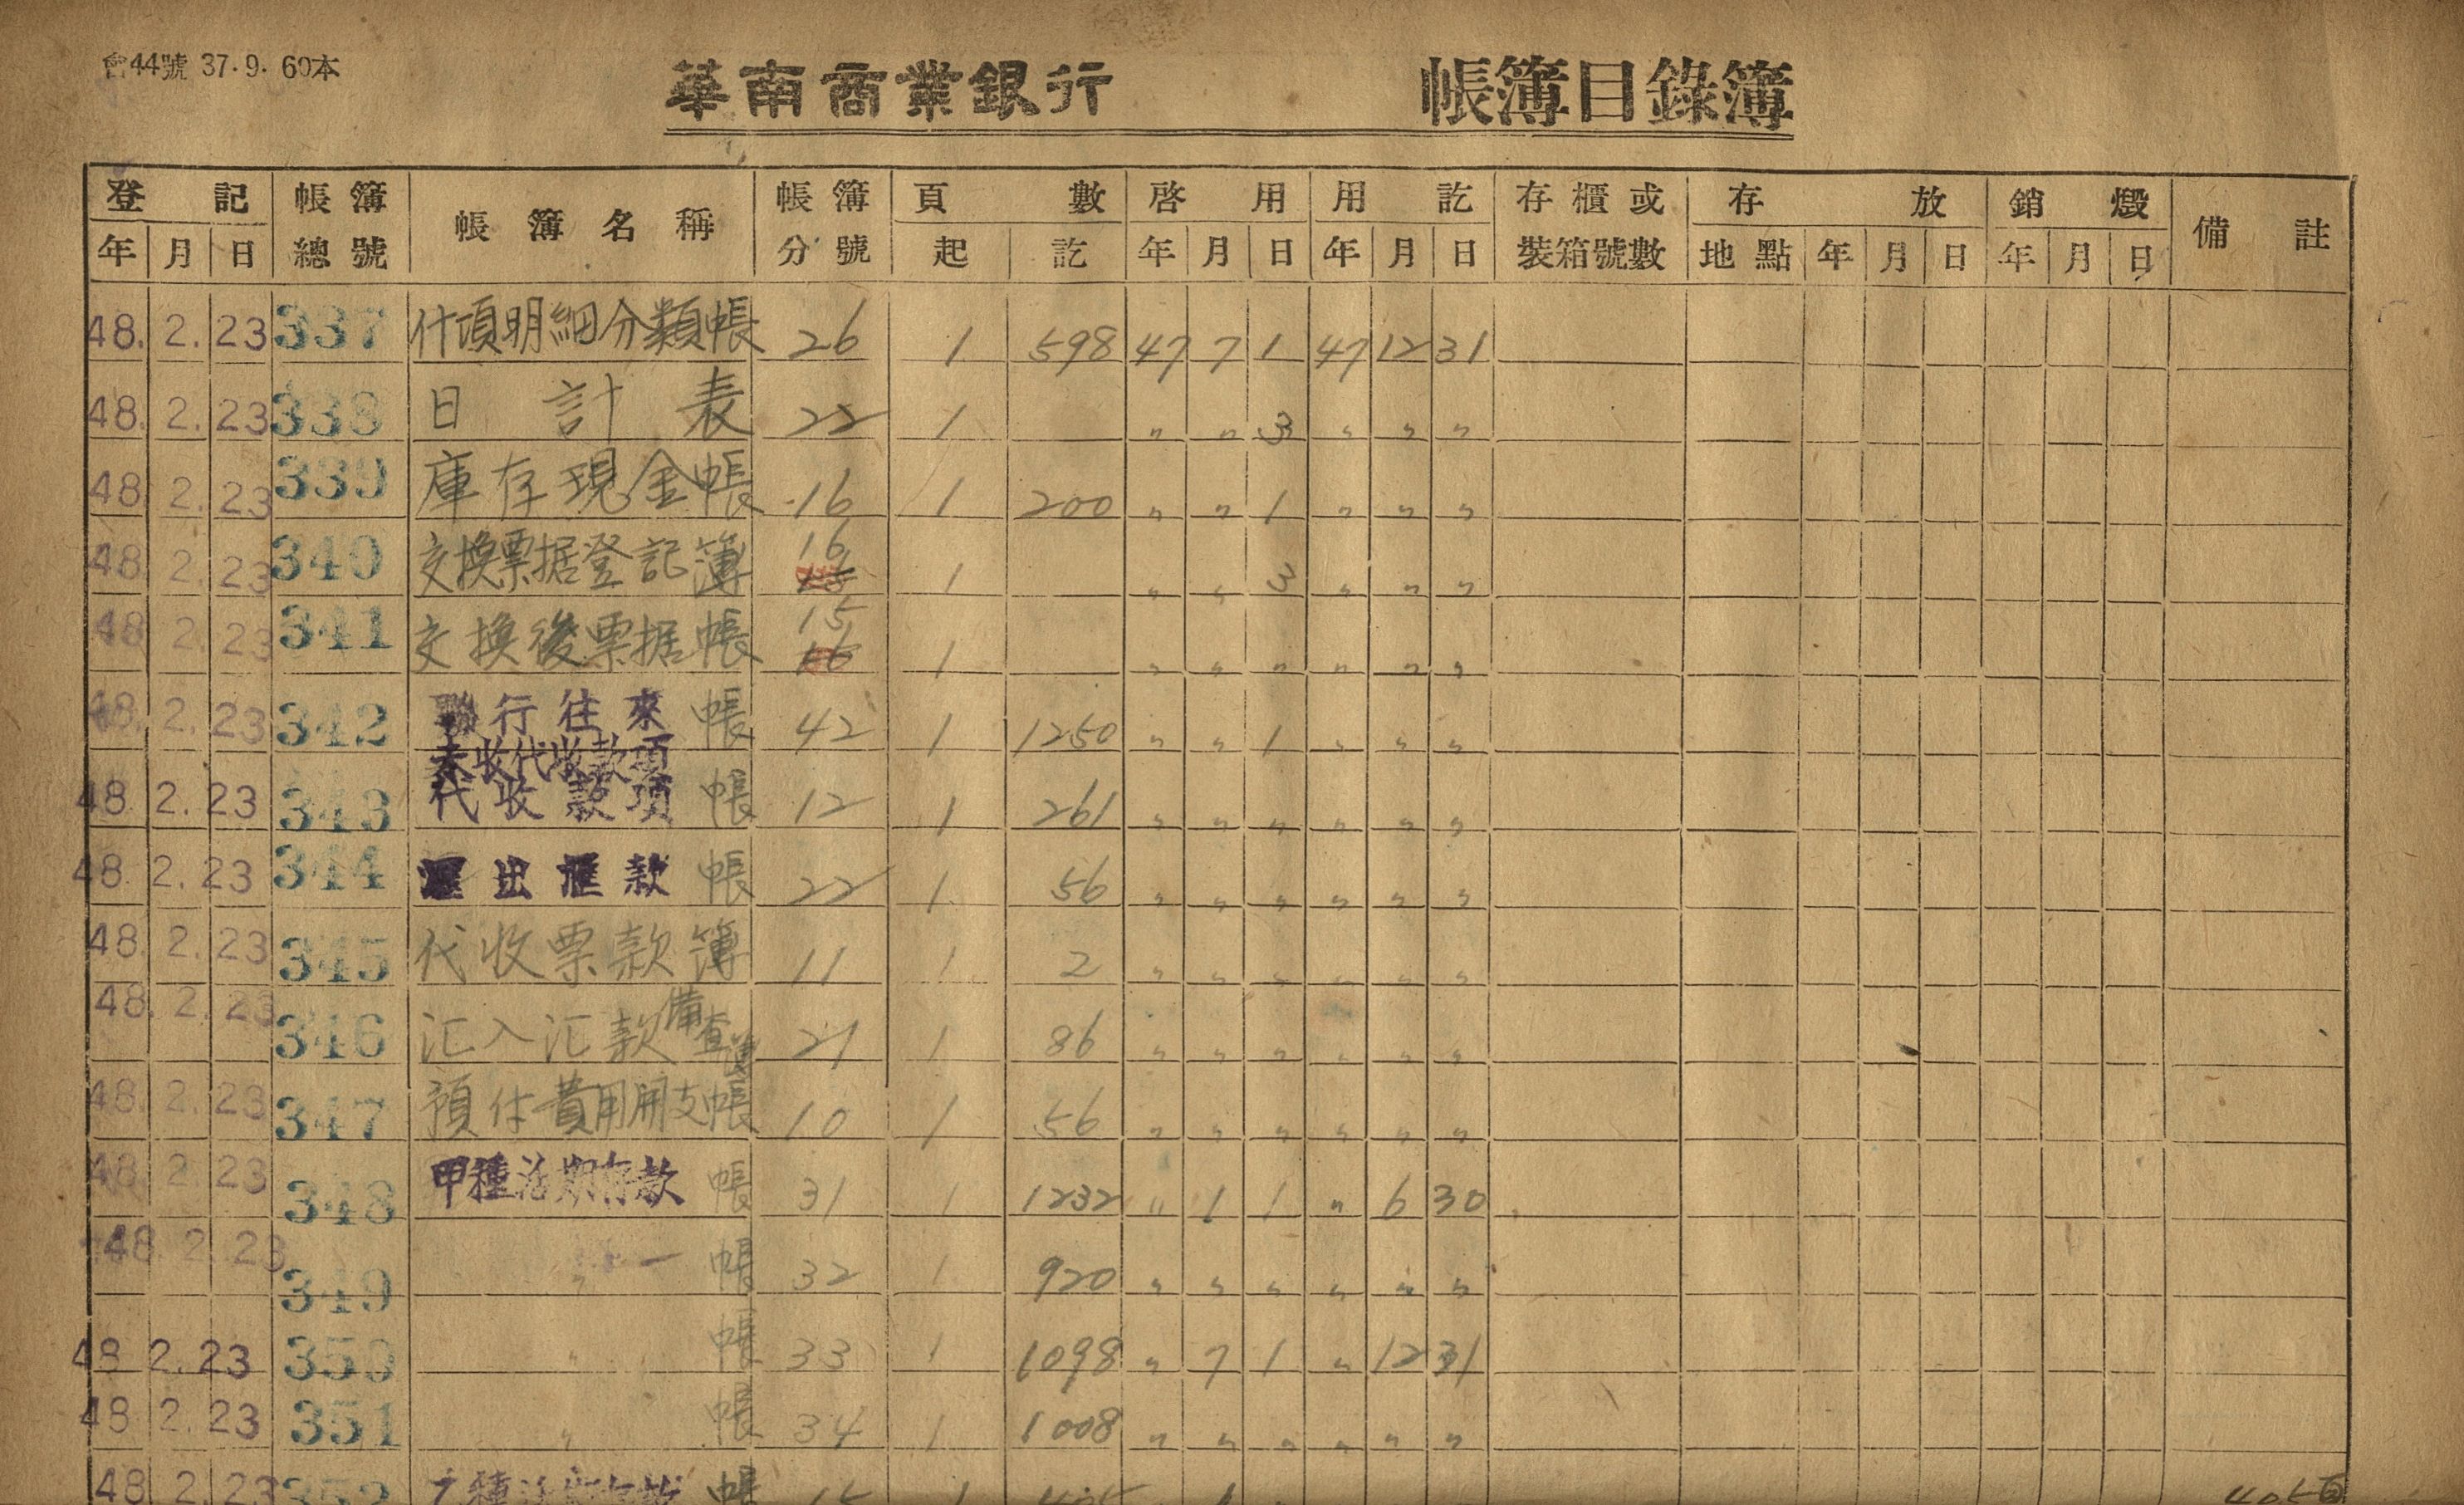 會44號 37.9. 60本
華南商業銀行 帳簿目錄簿
登記 帳簿 帳簿名稱 帳簿 頁數 啓用 用訖 存櫃或 存放 銷燬 備註
年 月 日 總號 分號 起 訖 年 月 日 年 月 日 裝箱號數 地點 年 月 日 年 月 日
48. 2. 23 337 什項明細分類帳 26 1 598 47 7 1 47 12 31
48. 2. 23 338 日計表 22 1 〃 〃 3 〃 〃 〃
48. 2. 23 339 庫存現金帳 16 1 200 〃 〃 1 〃 〃 〃
48. 2. 23 340 交換票据登記簿 16 1 〃 〃 3 〃 〃 〃
48. 2. 23 341 交換後票据帳 15 16 1 〃 〃 〃 〃 〃 〃
48. 2. 23 342 聯行往來帳 42 1 1250 〃 〃 1 〃 〃 〃
未收代收款項
48 2. 23 343 代收款項帳 12 1 261 〃 〃 〃 〃 〃 〃
48 2. 23 344 匯出匯款帳 22 1 56 〃 〃 〃 〃 〃 〃
48. 2. 23 345 代收票款簿 11 1 2 〃 〃 〃 〃 〃 〃
48. 2. 23 346 汇入汇款備查簿 21 1 86 〃 〃 〃 〃 〃 〃
48. 2. 23 347 預付費用開支帳 10 1 56 〃 〃 〃 〃 〃 〃
48. 2. 23 348 甲種活期存款帳 31 1 1232 〃 1 1 〃 6 30
48. 2. 23 349 〃 帳 32 1 920 〃 〃 〃 〃 〃 〃
48 2. 23 350 〃 帳 33 1 1098 〃 7 1 〃 12 31
48 2. 23 351 〃 帳 34 1 1008 〃 〃 〃 〃 〃 〃
48 2. 23 352 帳